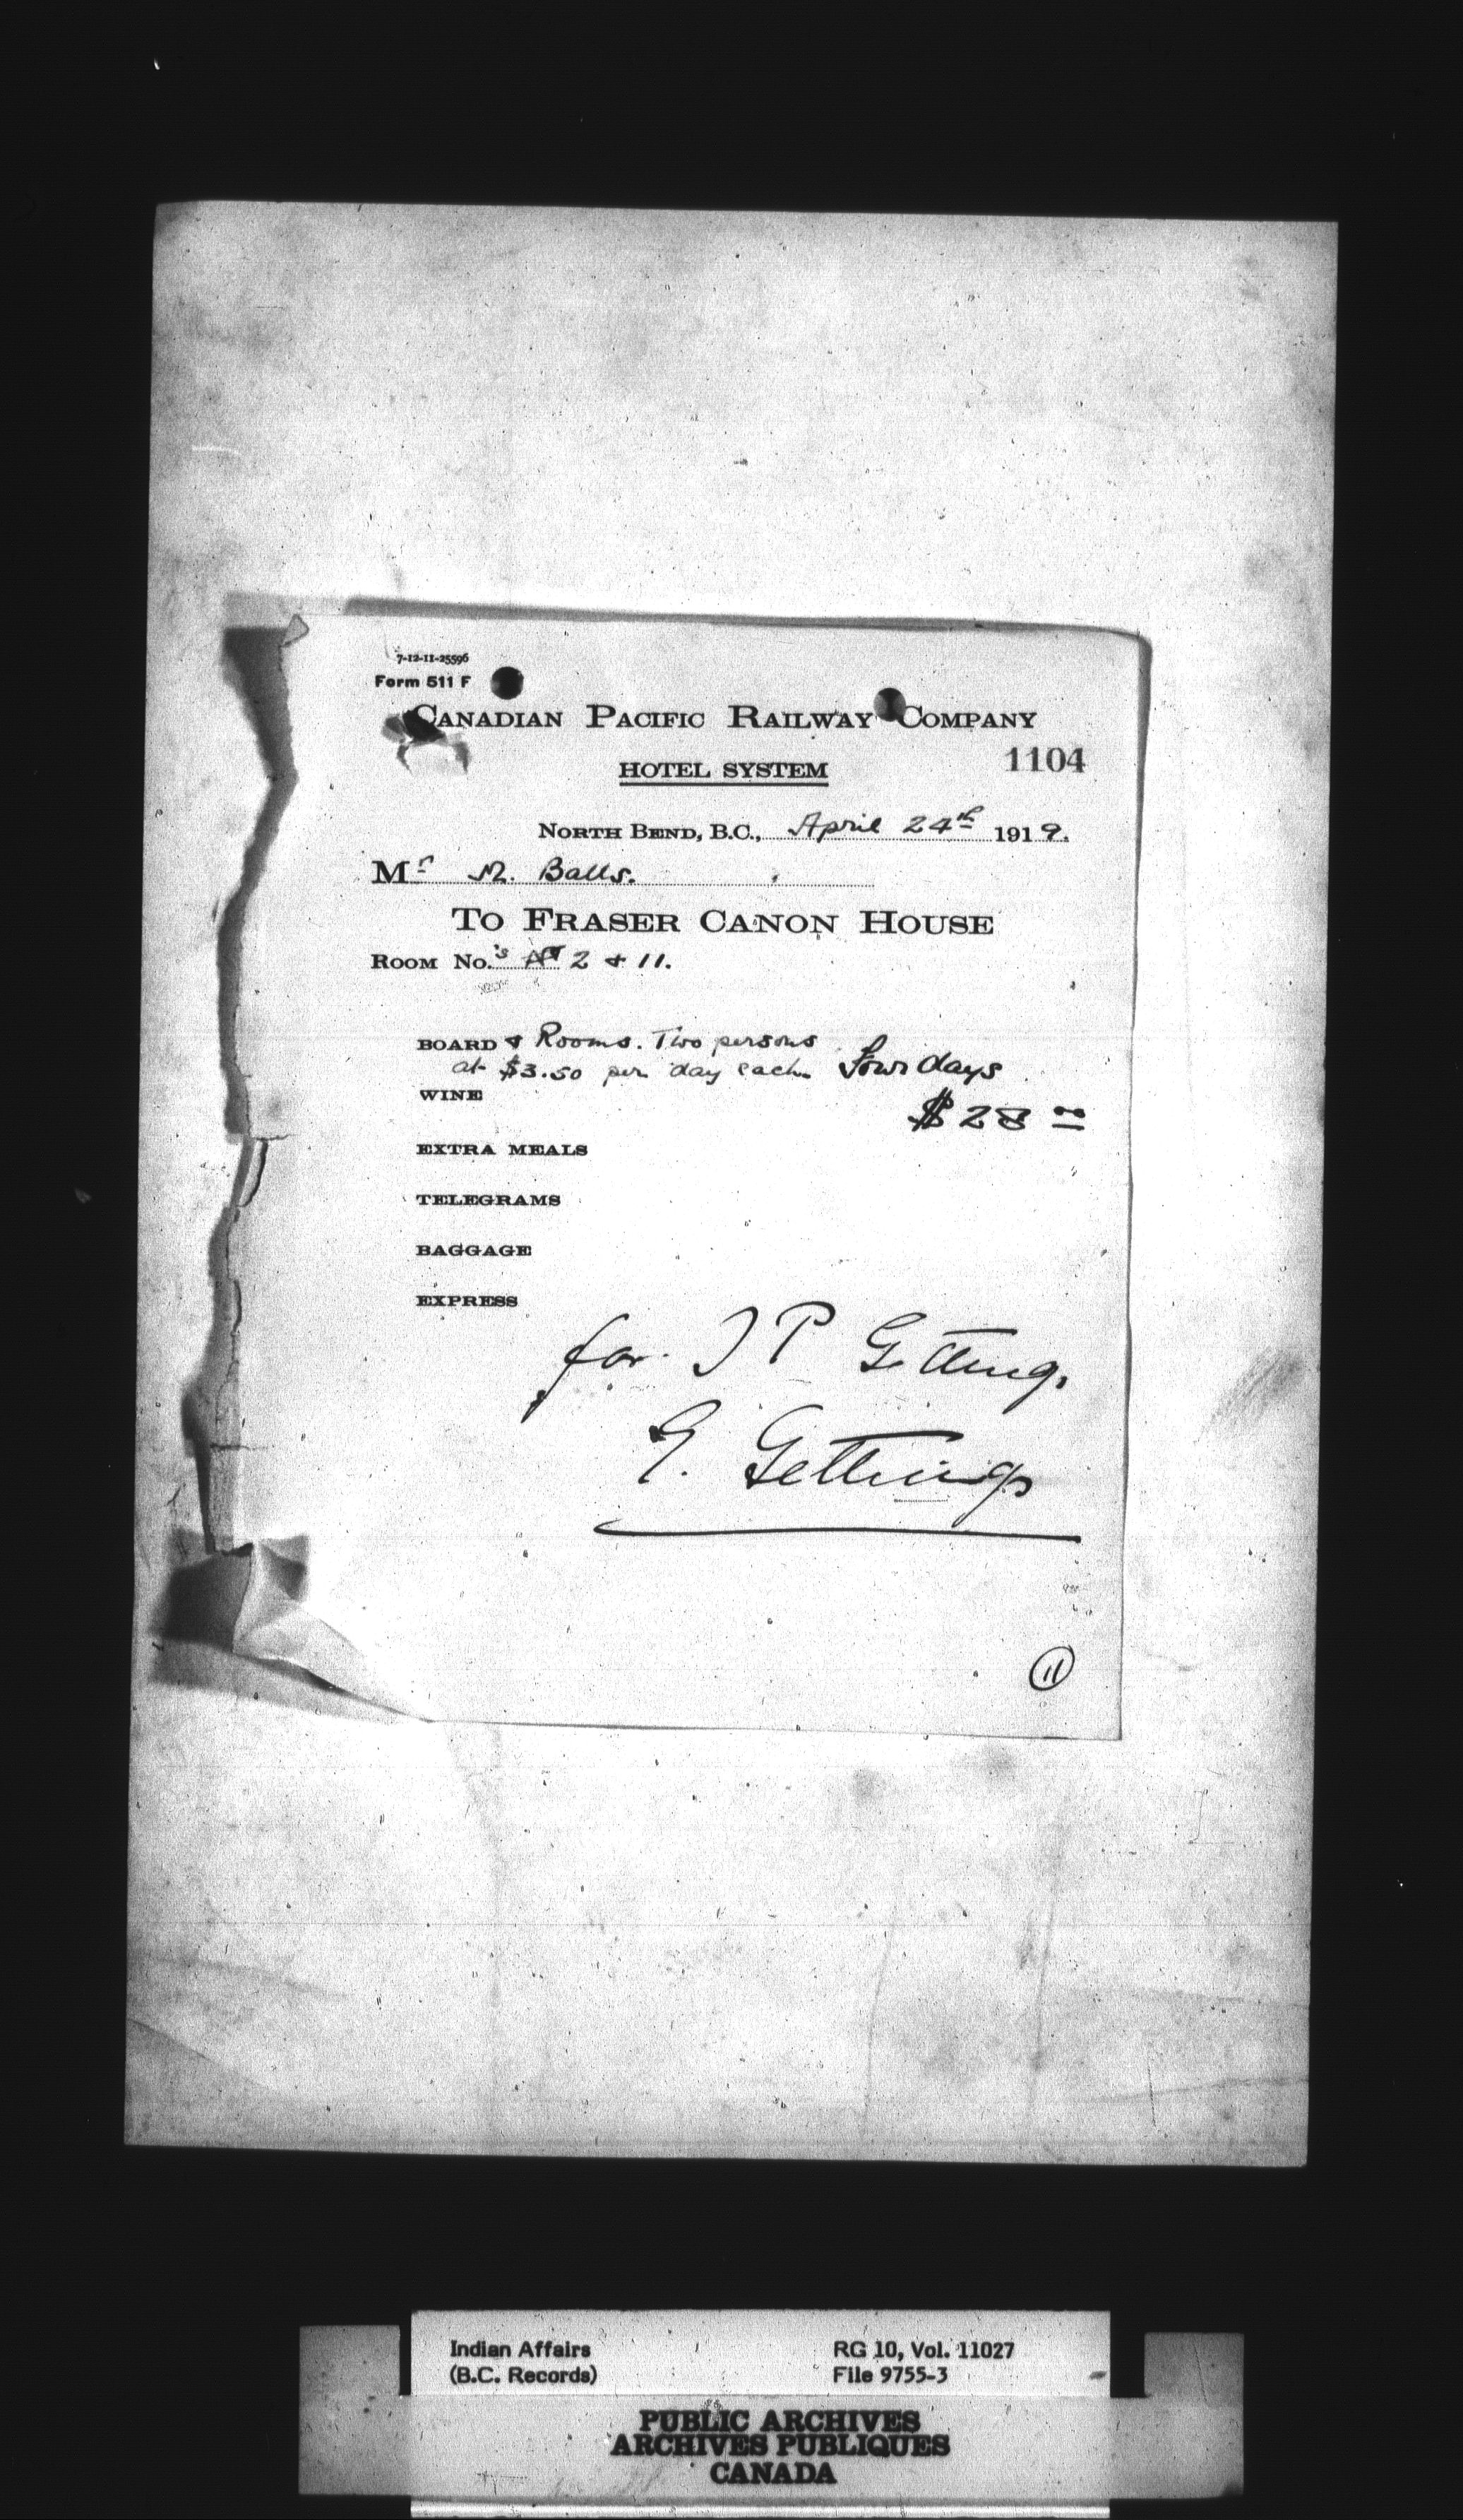 7-12-11-25596
Form 511 F
CANADIAN PACIFIC RAILWAY COMPANY
HOTEL SYSTEM
1104
NORTH BEND, B.C., April 24th 1919.
Mr M. Balls.
TO FRASER CANON HOUSE
ROOM No.'s 2 & 11.
BOARD & Rooms. Two persons
at $3.50 per day each. Four days
WINE
$28 00
EXTRA MEALS
TELEGRAMS
BAGGAGE
EXPRESS
for J P Gettings
G. Gettings
11
Indian Affairs
(B.C. Records)
RG 10, Vol. 11027
File 9755-3
PUBLIC ARCHIVES
ARCHIVES PUBLIQUES
CANADA